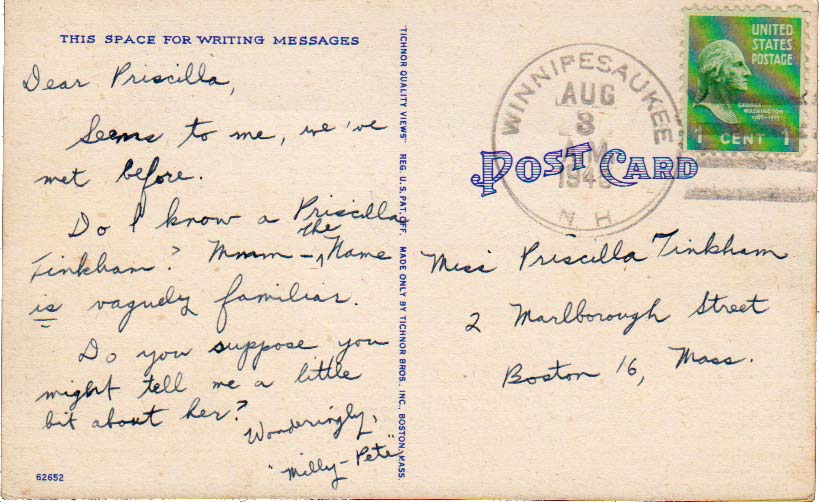 THIS SPACE FOR WRITING MESSAGES
Dear Priscilla,
Seems to me, we've
met before.
Do I know a Priscilla
Tinkham? Mmmm - the Name
is vaguely familiar.
Do you suppose you
might tell me a little
bit about her?
Wonderingly,
"Milly-Pete"
62652
"TICHNOR QUALITY VIEWS" REG. U.S. PAT. OFF. MADE ONLY BY TICHNOR BROS., INC., BOSTON, MASS.
WINNIPESAUKEE
AUG
8
A.M.
N H
UNITED
STATES
POSTAGE
GEORGE
WASHINGTON
1789-1797
1 CENT 1
POST CARD
Miss Priscilla Tinkham
2 Marlborough Street
Boston 16, Mass.